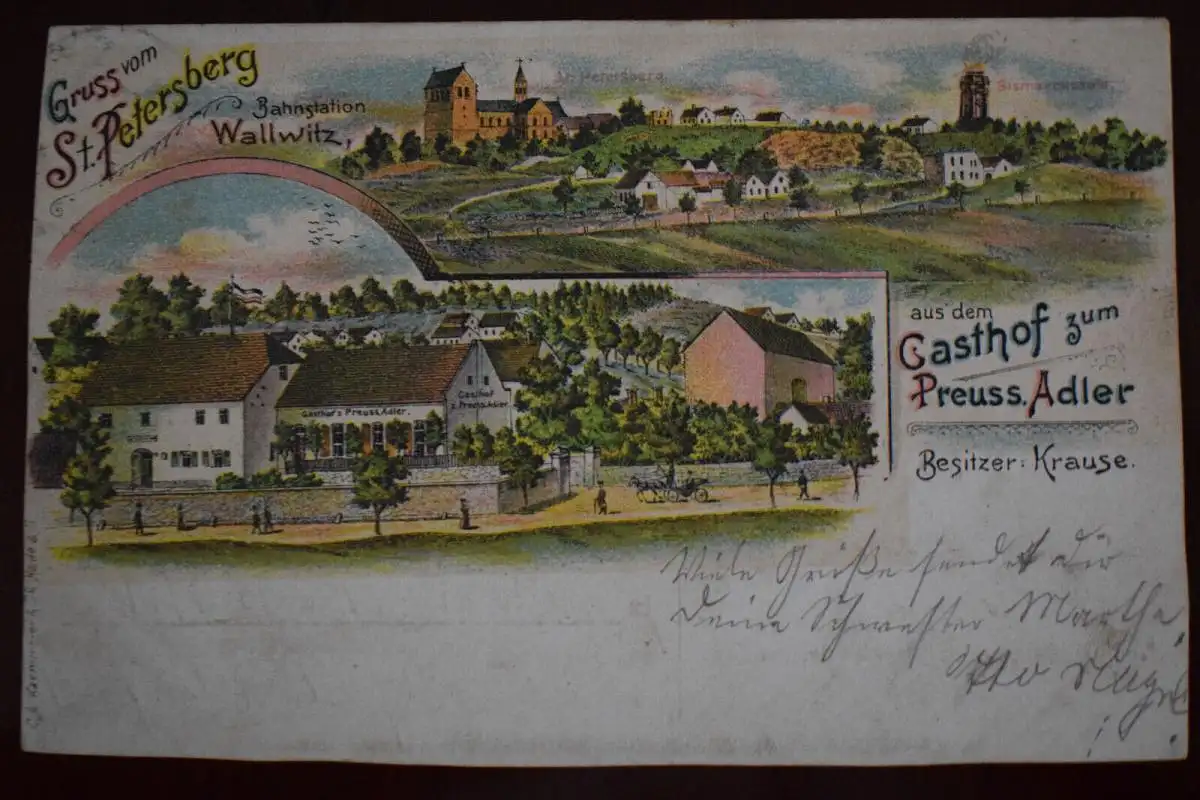 Gruss vom
St. Petersberg
Bahnstation
Wallwitz,
St. Petersberg
Bismarcksäule
aus dem
Gasthof zum
Preuss. Adler
Besitzer: Krause.
Gasthof z. Preuss. Adler.
Gasthof
z. Preuss. Adler
Viele Grüße sendet dir
Deine Schwester Martha
Otto